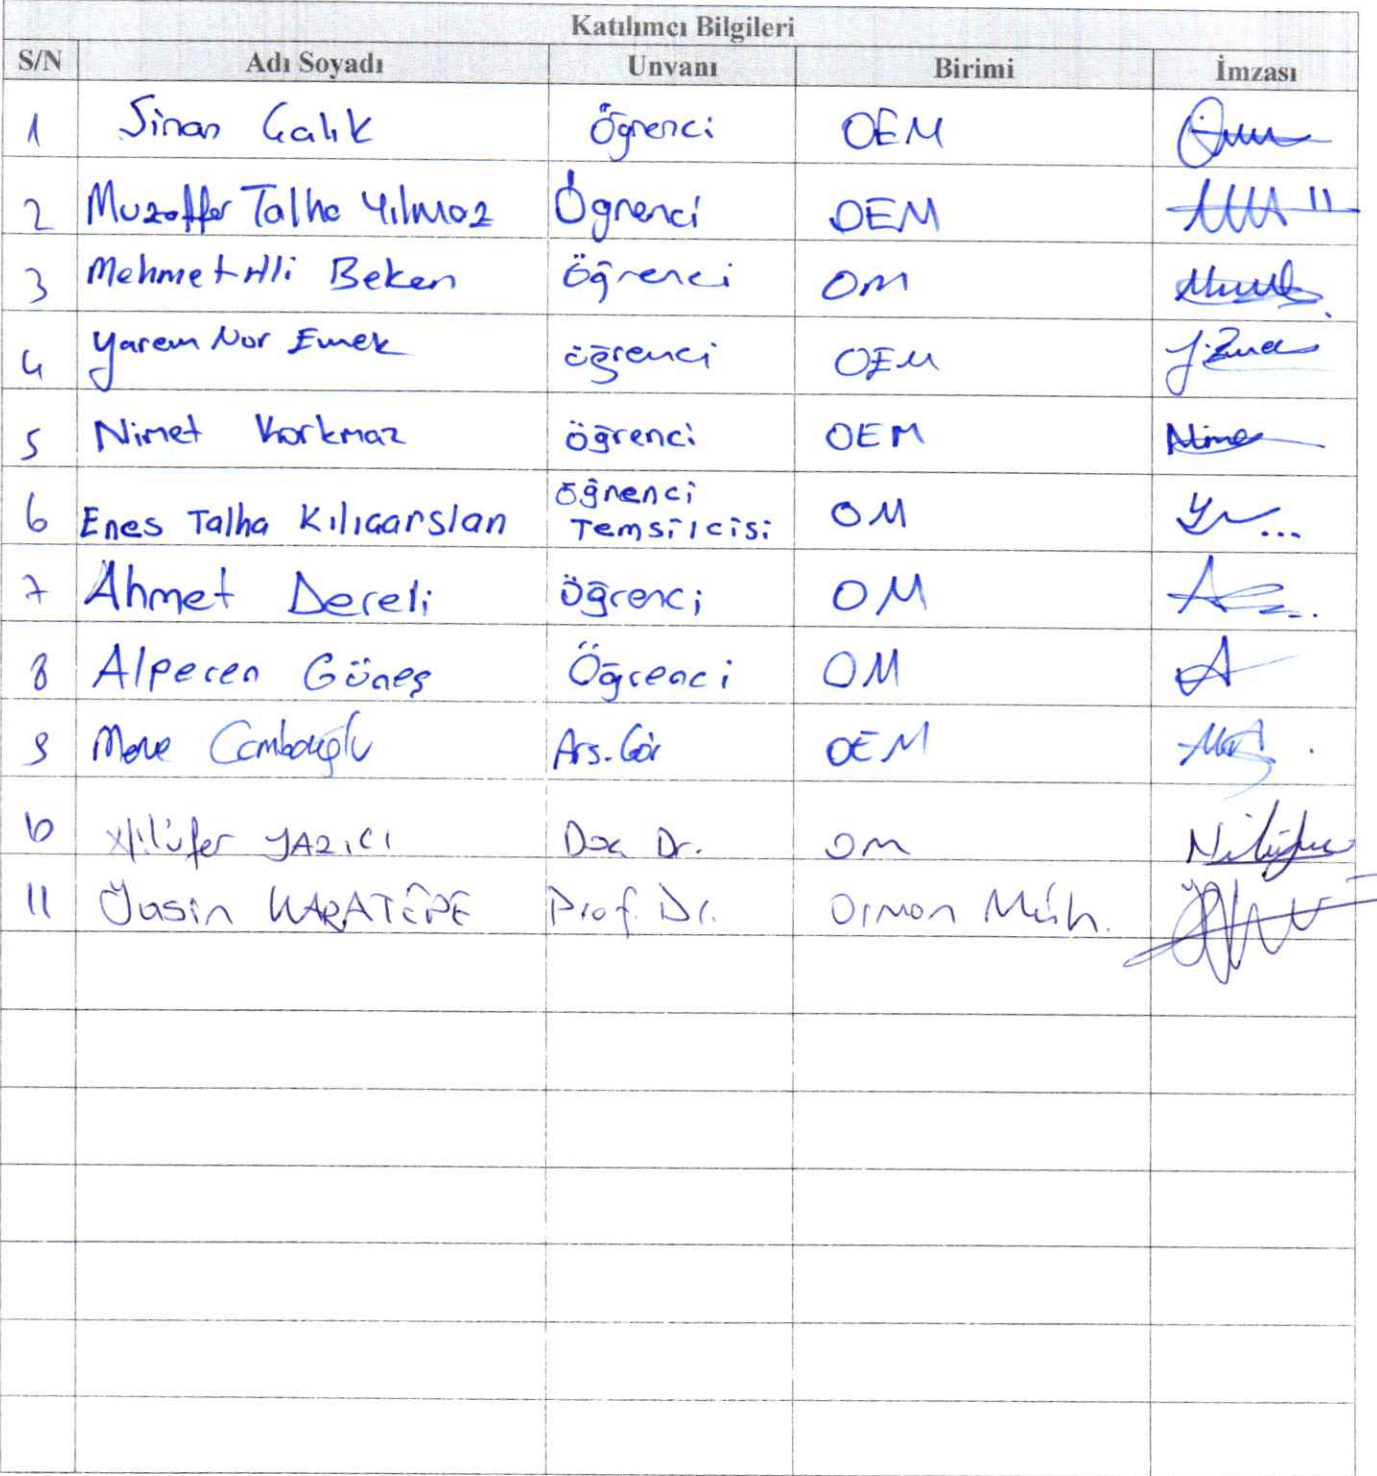 Katılımcı Bilgileri
S/N Adı Soyadı Unvanı Birimi İmzası
1 Sinan Çalık Öğrenci OEM
2 Muzaffer Talha Yılmaz Öğrenci OEM
3 Mehmet Ali Beken Öğrenci OM
4 Yarem Nur Emek öğrenci OEM
5 Nimet Korkmaz öğrenci OEM Nime
6 Enes Talha Kılıçarslan öğrenci Temsilcisi OM
7 Ahmet Dereli öğrenci OM
8 Alperen Güneş Öğrenci OM
9 Merve Cambazoğlu Arş. Gör OEM
10 Nilüfer YAZICI Doç. Dr. OM Nilüfer
11 Yasin KARATEPE Prof. Dr. Orman Müh.